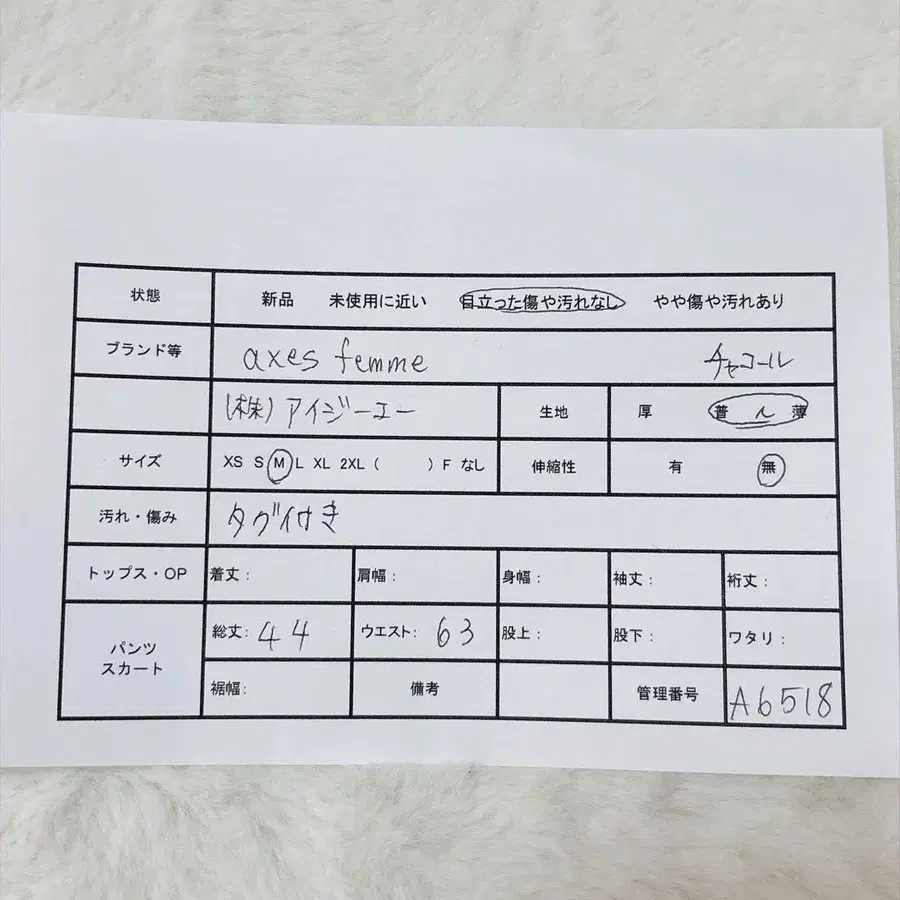 状態 新品 未使用に近い 目立った傷や汚れなし やや傷や汚れあり
ブランド等 axes femme チャコール
(株)アイジーエー 生地 厚 普 〜 薄
サイズ XS S M L XL 2XL ( ) F なし 伸縮性 有 無
汚れ・傷み タグ付き
トップス・OP 着丈: 肩幅: 身幅: 袖丈: 裄丈:
パンツ スカート 総丈: 44 ウエスト: 63 股上: 股下: ワタリ:
裾幅: 備考 管理番号 A6518